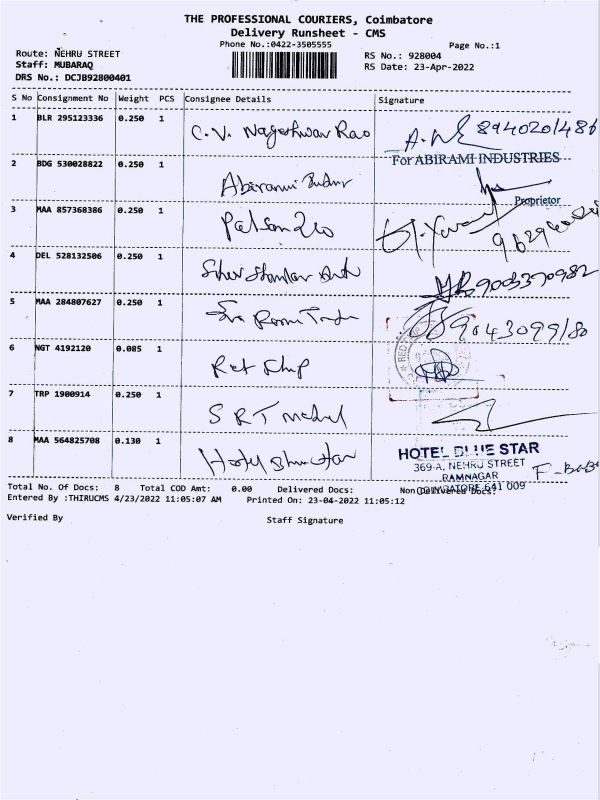 THE PROFESSIONAL COURIERS, Coimbatore
Delivery Runsheet - CMS
Phone No.:0422-3505555
Page No.:1
Route: NEHRU STREET
RS No.: 928004
Staff: MUBARAQ
RS Date: 23-Apr-2022
DRS No.: DCJB92800401
S No Consignment No Weight PCS Consignee Details Signature
1 BLR 295123336 0.250 1 C.V. Nageshwar Rao 8940201486
For ABIRAMI INDUSTRIES
2 BDG 530028822 0.250 1 Abirami
Proprietor
3 MAA 857368386 0.250 1
4 DEL 528132506 0.250 1 9003370982
5 MAA 284807627 0.250 1 9043099180
6 NGT 4192120 0.085 1
7 TRP 1900914 0.250 1 S R T
8 MAA 564825708 0.130 1 Hotel
HOTEL BLUE STAR
369-A, NEHRU STREET
RAMNAGAR
COIMBATORE 641 009
Total No. Of Docs: 8 Total COD Amt: 0.00 Delivered Docs: Non Delivered Docs:
Entered By :THIRUCMS 4/23/2022 11:05:07 AM Printed On: 23-04-2022 11:05:12
Verified By Staff Signature